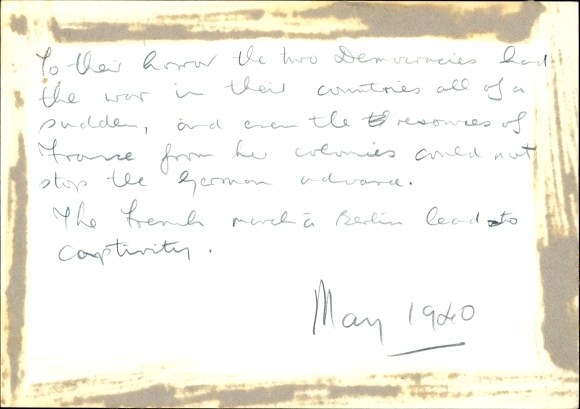 To their horror the two Democracies had
the war in their countries all of a
sudden, and even the resources of
France from her colonies could not
stop the German advance.
The French march à Berlin lead to
captivity.
May 1940